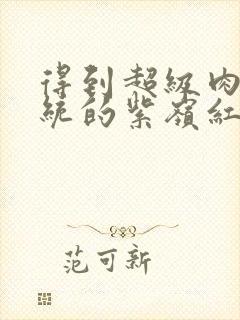 得到超级肉
统的紫嶺紅
范可新